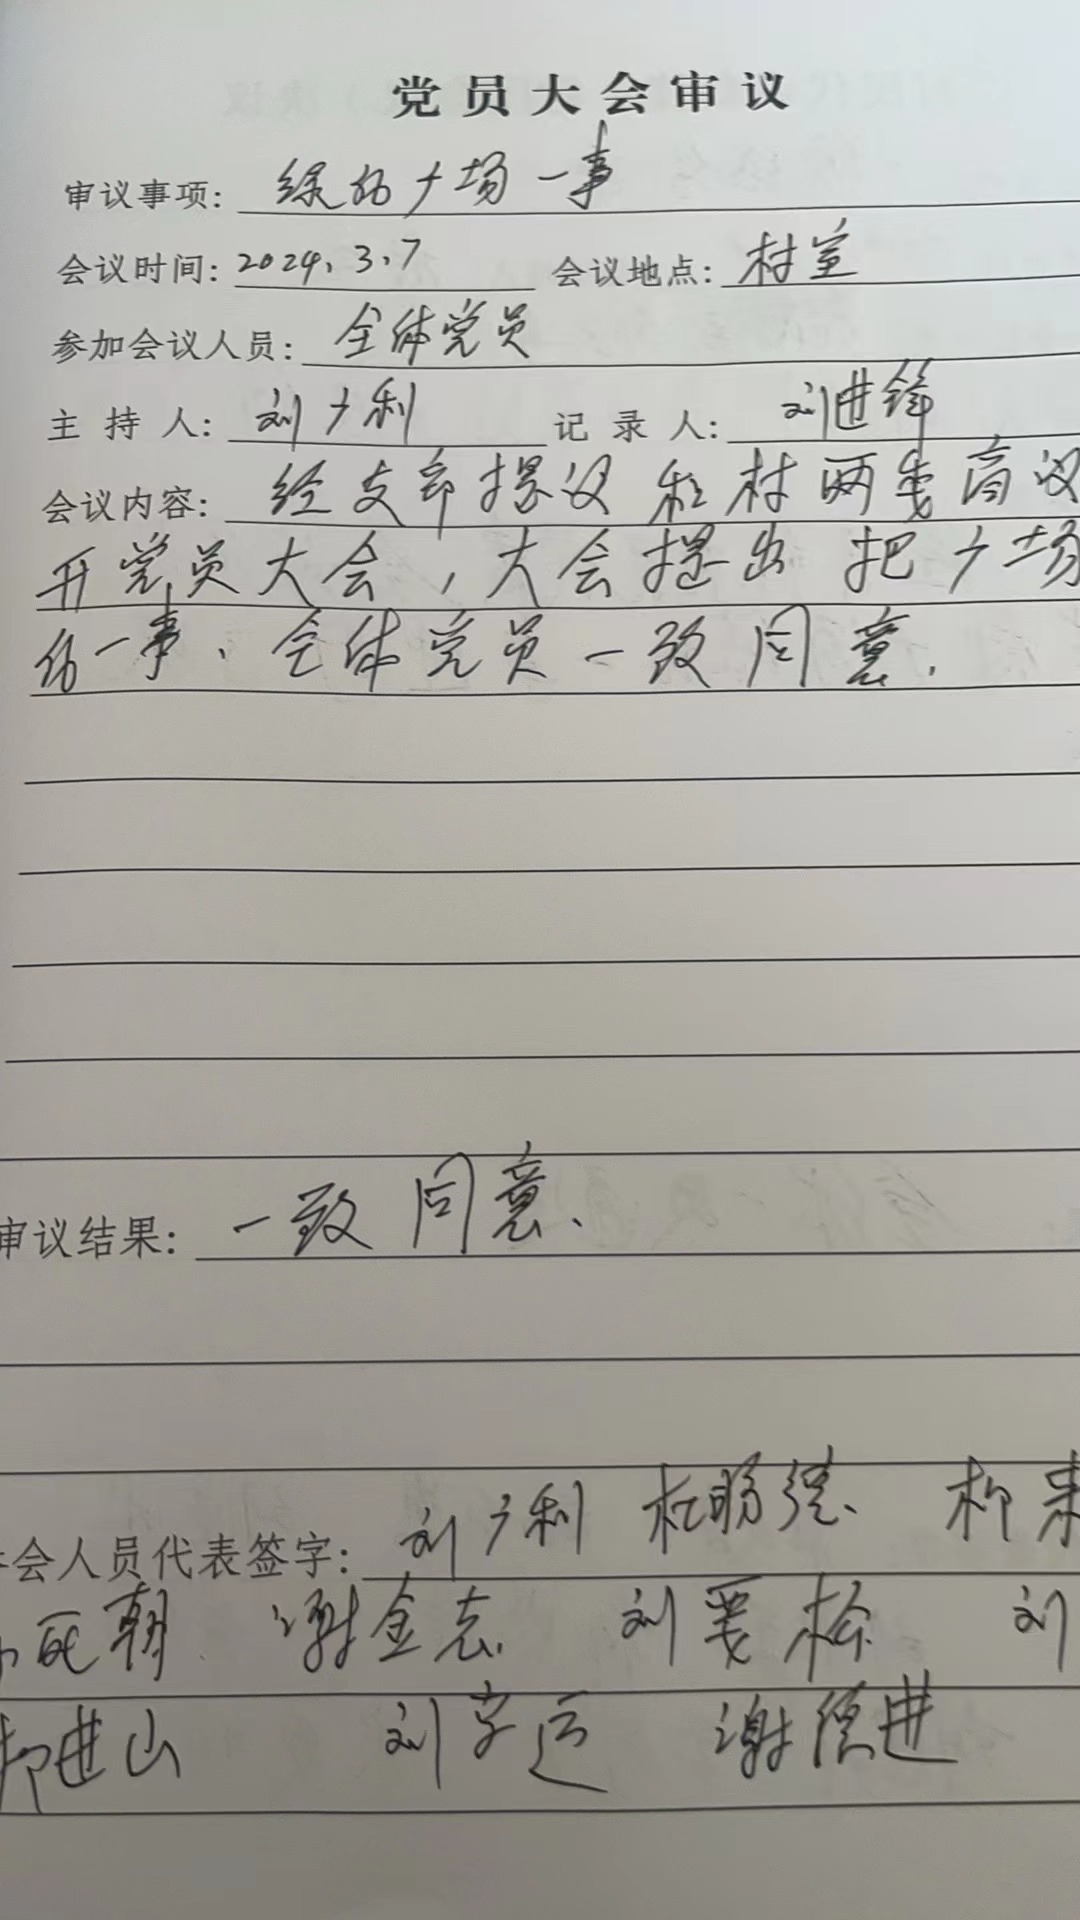 党员大会审议
审议事项: 绿化广场一事
会议时间: 2024.3.7 会议地点: 村室
参加会议人员: 全体党员
主持人: 刘广利 记录人: 刘进锋
会议内容: 经支部提议和村两委商议
开党员大会,大会提出把广场
一事、全体党员一致同意.
审议结果: 一致同意.
会人员代表签字: 刘广利 杜 柳
朝 谢金志 刘 松 刘
柳进山 刘 运 谢德进